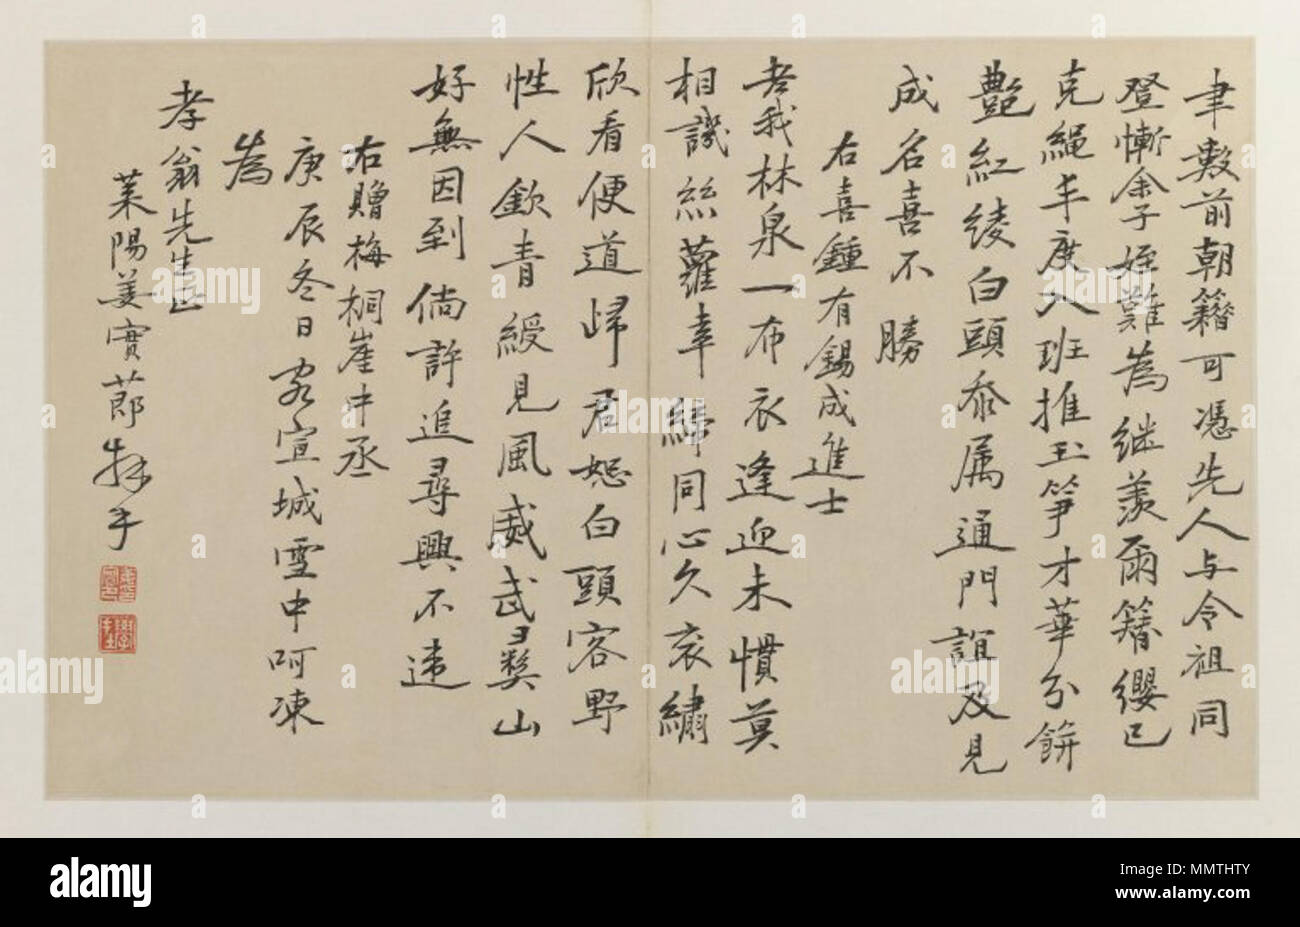 聿數前朝籍可憑先人与令祖同
登慚余子姪難為継羡爾簪纓已
克繩年度入班推玉筍才華分餅
艷紅綾白頭忝属通門誼及見
成名喜不勝
右喜鍾有錫成進士
老我林泉一布衣逢迎未慣莫
相譏絲蘿幸締同心久衮繡
欣看便道歸君恕白頭客野
性人欽青綬見風威武彛山
好無因到倘許追尋興不違
右贈梅桐崖中丞
庚辰冬日客宣城雪中呵凍
為
孝翁先生正
莱陽姜實莭
alamy
Image ID: MMTHTY
www.alamy.com